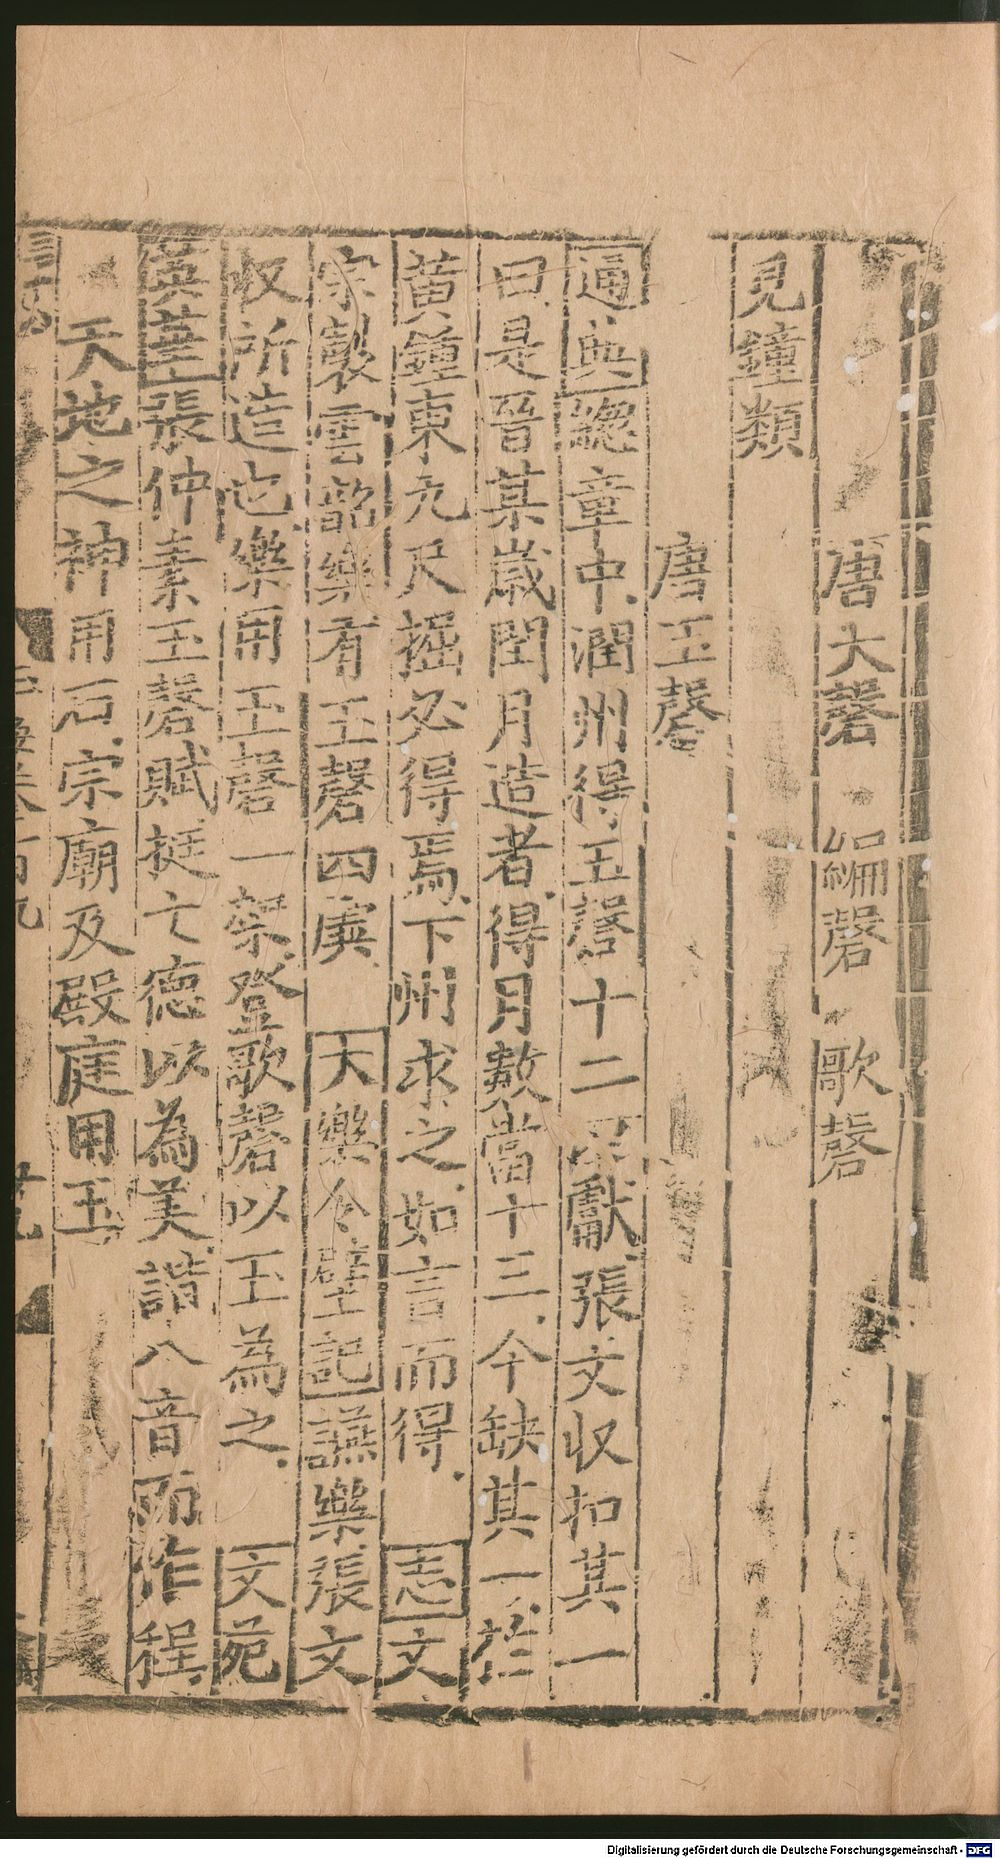 唐大磬 編磬 歌磬
見鐘類
唐玉磬
通典總章中潤州得玉磬十二以獻張文收扣其一
曰是晉某歲閏月造者得月數當十三今缺其一於
黃鐘東九尺掘必得焉下州求之如言而得 志文
宗製雲韶樂有玉磬四虡 大樂令壁記讌樂張文
收所造也樂用玉磬一架登歌磬以玉為之 文苑
英華張仲素玉磬賦挺七德以為美諧八音而作程
天地之神用石宗廟及殿庭用玉
卷一百九
Digitalisierung gefördert durch die Deutsche Forschungsgemeinschaft - DFG